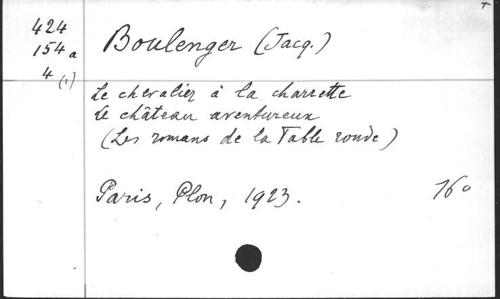 424
154a
4(1)
Boulenger (Jacq.)
Le chevalier à la charrette
Le château aventureux
(Les romans de la Table ronde)
Paris, Plon, 1923.
16°